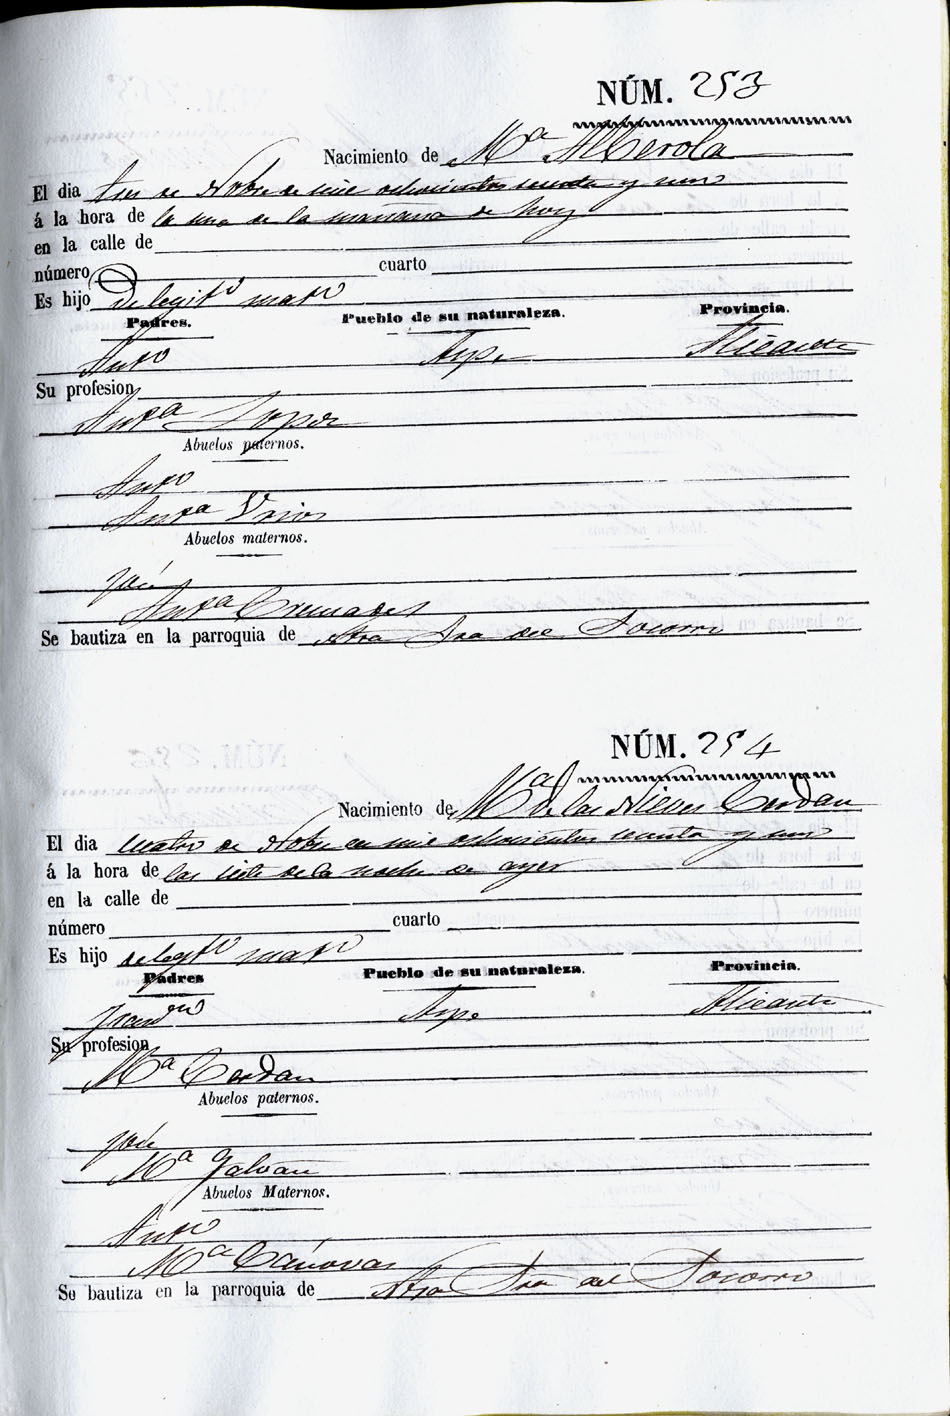 NÚM. 253
Nacimiento de Mª Alberola
El dia tres de Nobre de mil ochocientos sesenta y uno
á la hora de la una de la mañana de hoy
en la calle de
número cuarto
Es hijo de legitº matº
Padres. Pueblo de su naturaleza. Provincia.
Antº Aspe Alicante
Su profesion
Antª Lopez
Abuelos paternos.
Antº
Antª Urios
Abuelos maternos.
José
Antª Cremades
Se bautiza en la parroquia de Ntra Sra del Socorro
NÚM. 254
Nacimiento de Mª de las Nieves Cerdan
El dia cuatro de Nobre de mil ochocientos sesenta y uno
á la hora de las siete de la noche de ayer
en la calle de
número cuarto
Es hijo de legitº matº
Padres Pueblo de su naturaleza. Provincia.
Aspe Alicante
Su profesion
Mª Cerdan
Abuelos paternos.
José
Mª Galvañ
Abuelos Maternos.
Antº
Mª Cánovas
Se bautiza en la parroquia de Ntra Sra del Socorro